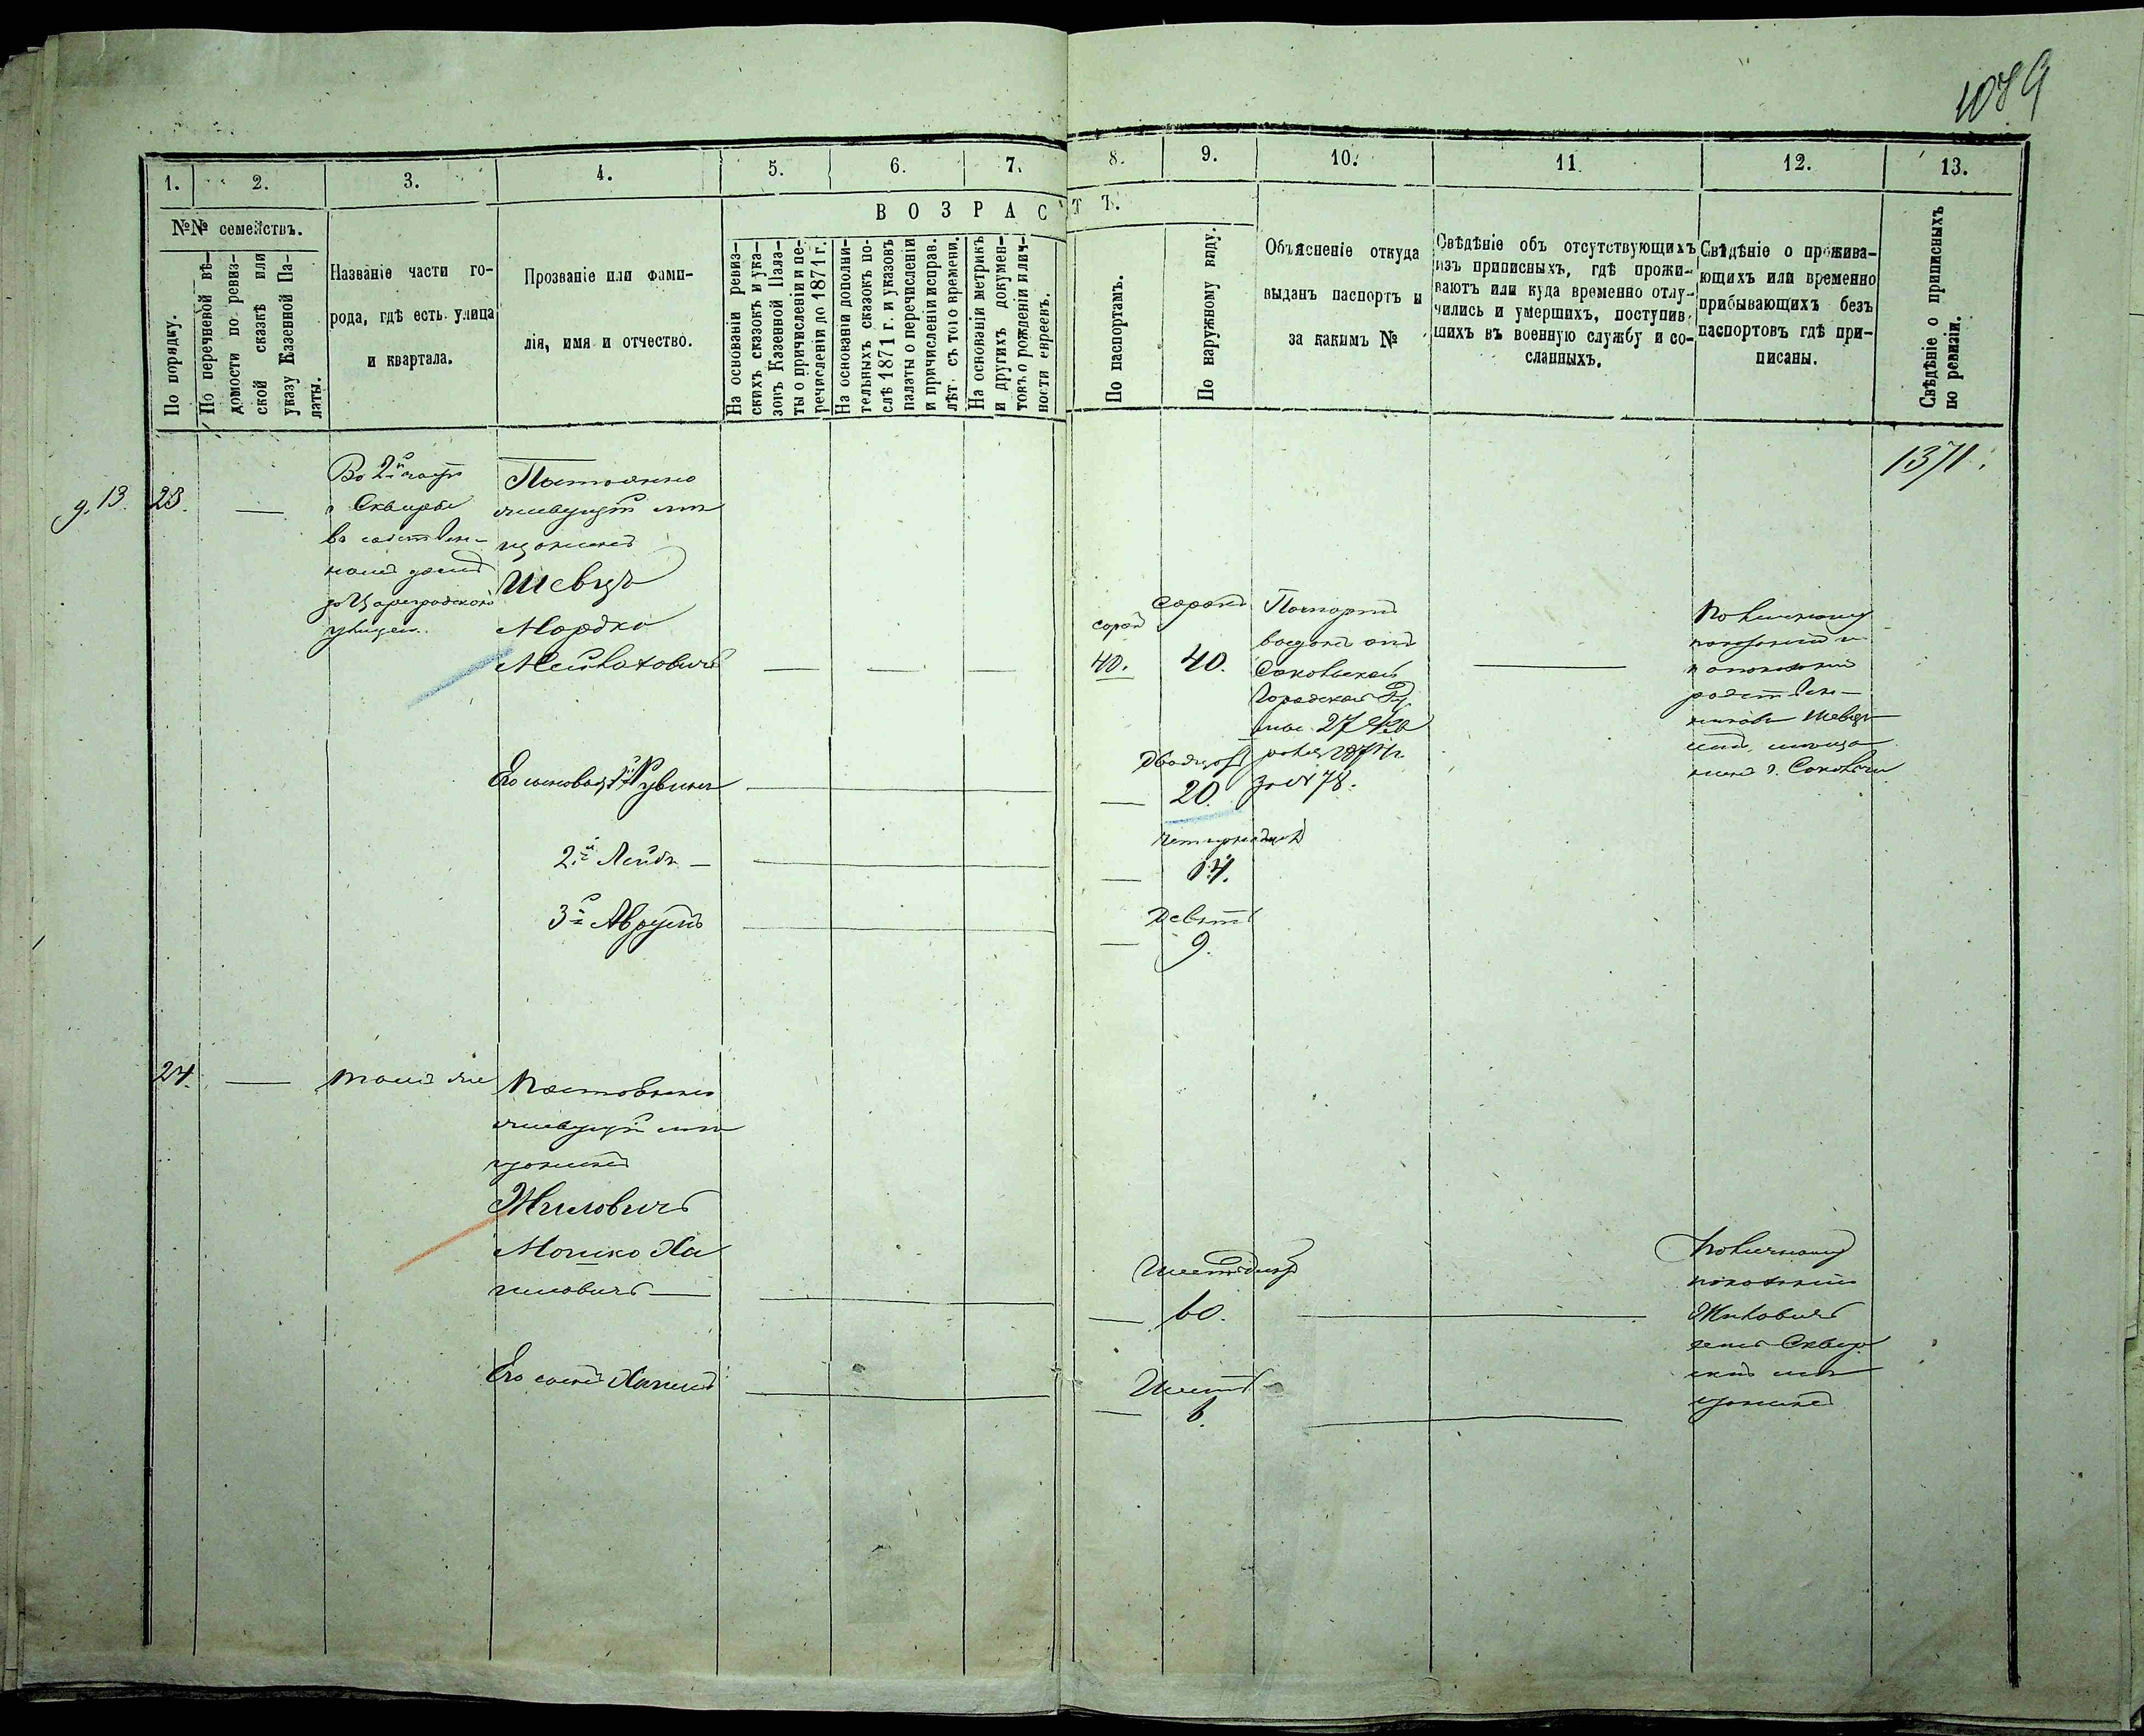 1089
1. 2. 3. 4. 5. 6. 7. 8. 9. 10. 11 12. 13.
№№ семействъ.
По порядку.
По перечневой вѣ-
домости по ревиз-
ской сказкѣ или
указу Казенной Па-
латы.
Названіе части го-
рода, гдѣ есть улица
и квартала.
Прозваніе или фами-
лія, имя и отчество.
ВОЗРАСТЪ.
На основаніи ревиз-
скихъ сказокъ и ука-
зовъ Казенной Пала-
ты о причисленіи и пе-
речисленіи до 1871 г.
На основаніи дополни-
тельныхъ сказокъ по-
слѣ 1871 г. и указовъ
палаты о перечисленіи
и причисленіи исправ.
лѣт. съ того времени.
На основаніи метрикъ
и другихъ докумен-
товъ о рожденіи и лич-
ности евреевъ.
По паспортамъ.
По наружному виду.
Объясненіе откуда
выданъ паспортъ и
за какимъ №
Свѣдѣніе объ отсутствующихъ
изъ приписныхъ, гдѣ прожи-
ваютъ или куда временно отлу-
чились и умершихъ, поступив-
шихъ въ военную службу и со-
сланныхъ.
Свѣдѣніе о прожива-
ющихъ или временно
прибывающихъ безъ
паспортовъ гдѣ при-
писаны.
Свѣдѣніе о приписныхъ
по ревизіи.
1371.
д. 13. 23. —
Во 2й части
г Сквиры
въ собствен-
номъ домѣ
по Цареградской
улицѣ.
Постоянно
живущій мѣ
щанинъ
Шевцъ
Мордко
Мейлаховичъ
сорокъ
40.
сорокъ
40.
Паспортъ
выданъ отъ
Городской Ду
мы 27
за № 78.
По личному
показанію и
родствен-
никовъ Шевцъ
Его сыновья, 1й Рувинъ
двадцать
20.
2й Лейбъ —
четырнадцать
14.
3й Аврумъ
девять
9.
24. — тамъ же
Постоянно
живущій мѣ
щанинъ
Мошко Ха
имовичъ —
шестьдесятъ
60.
По личному
показанію
Сквир
скій мѣ
щанинъ
Его сынъ Хаимъ
шесть
6.